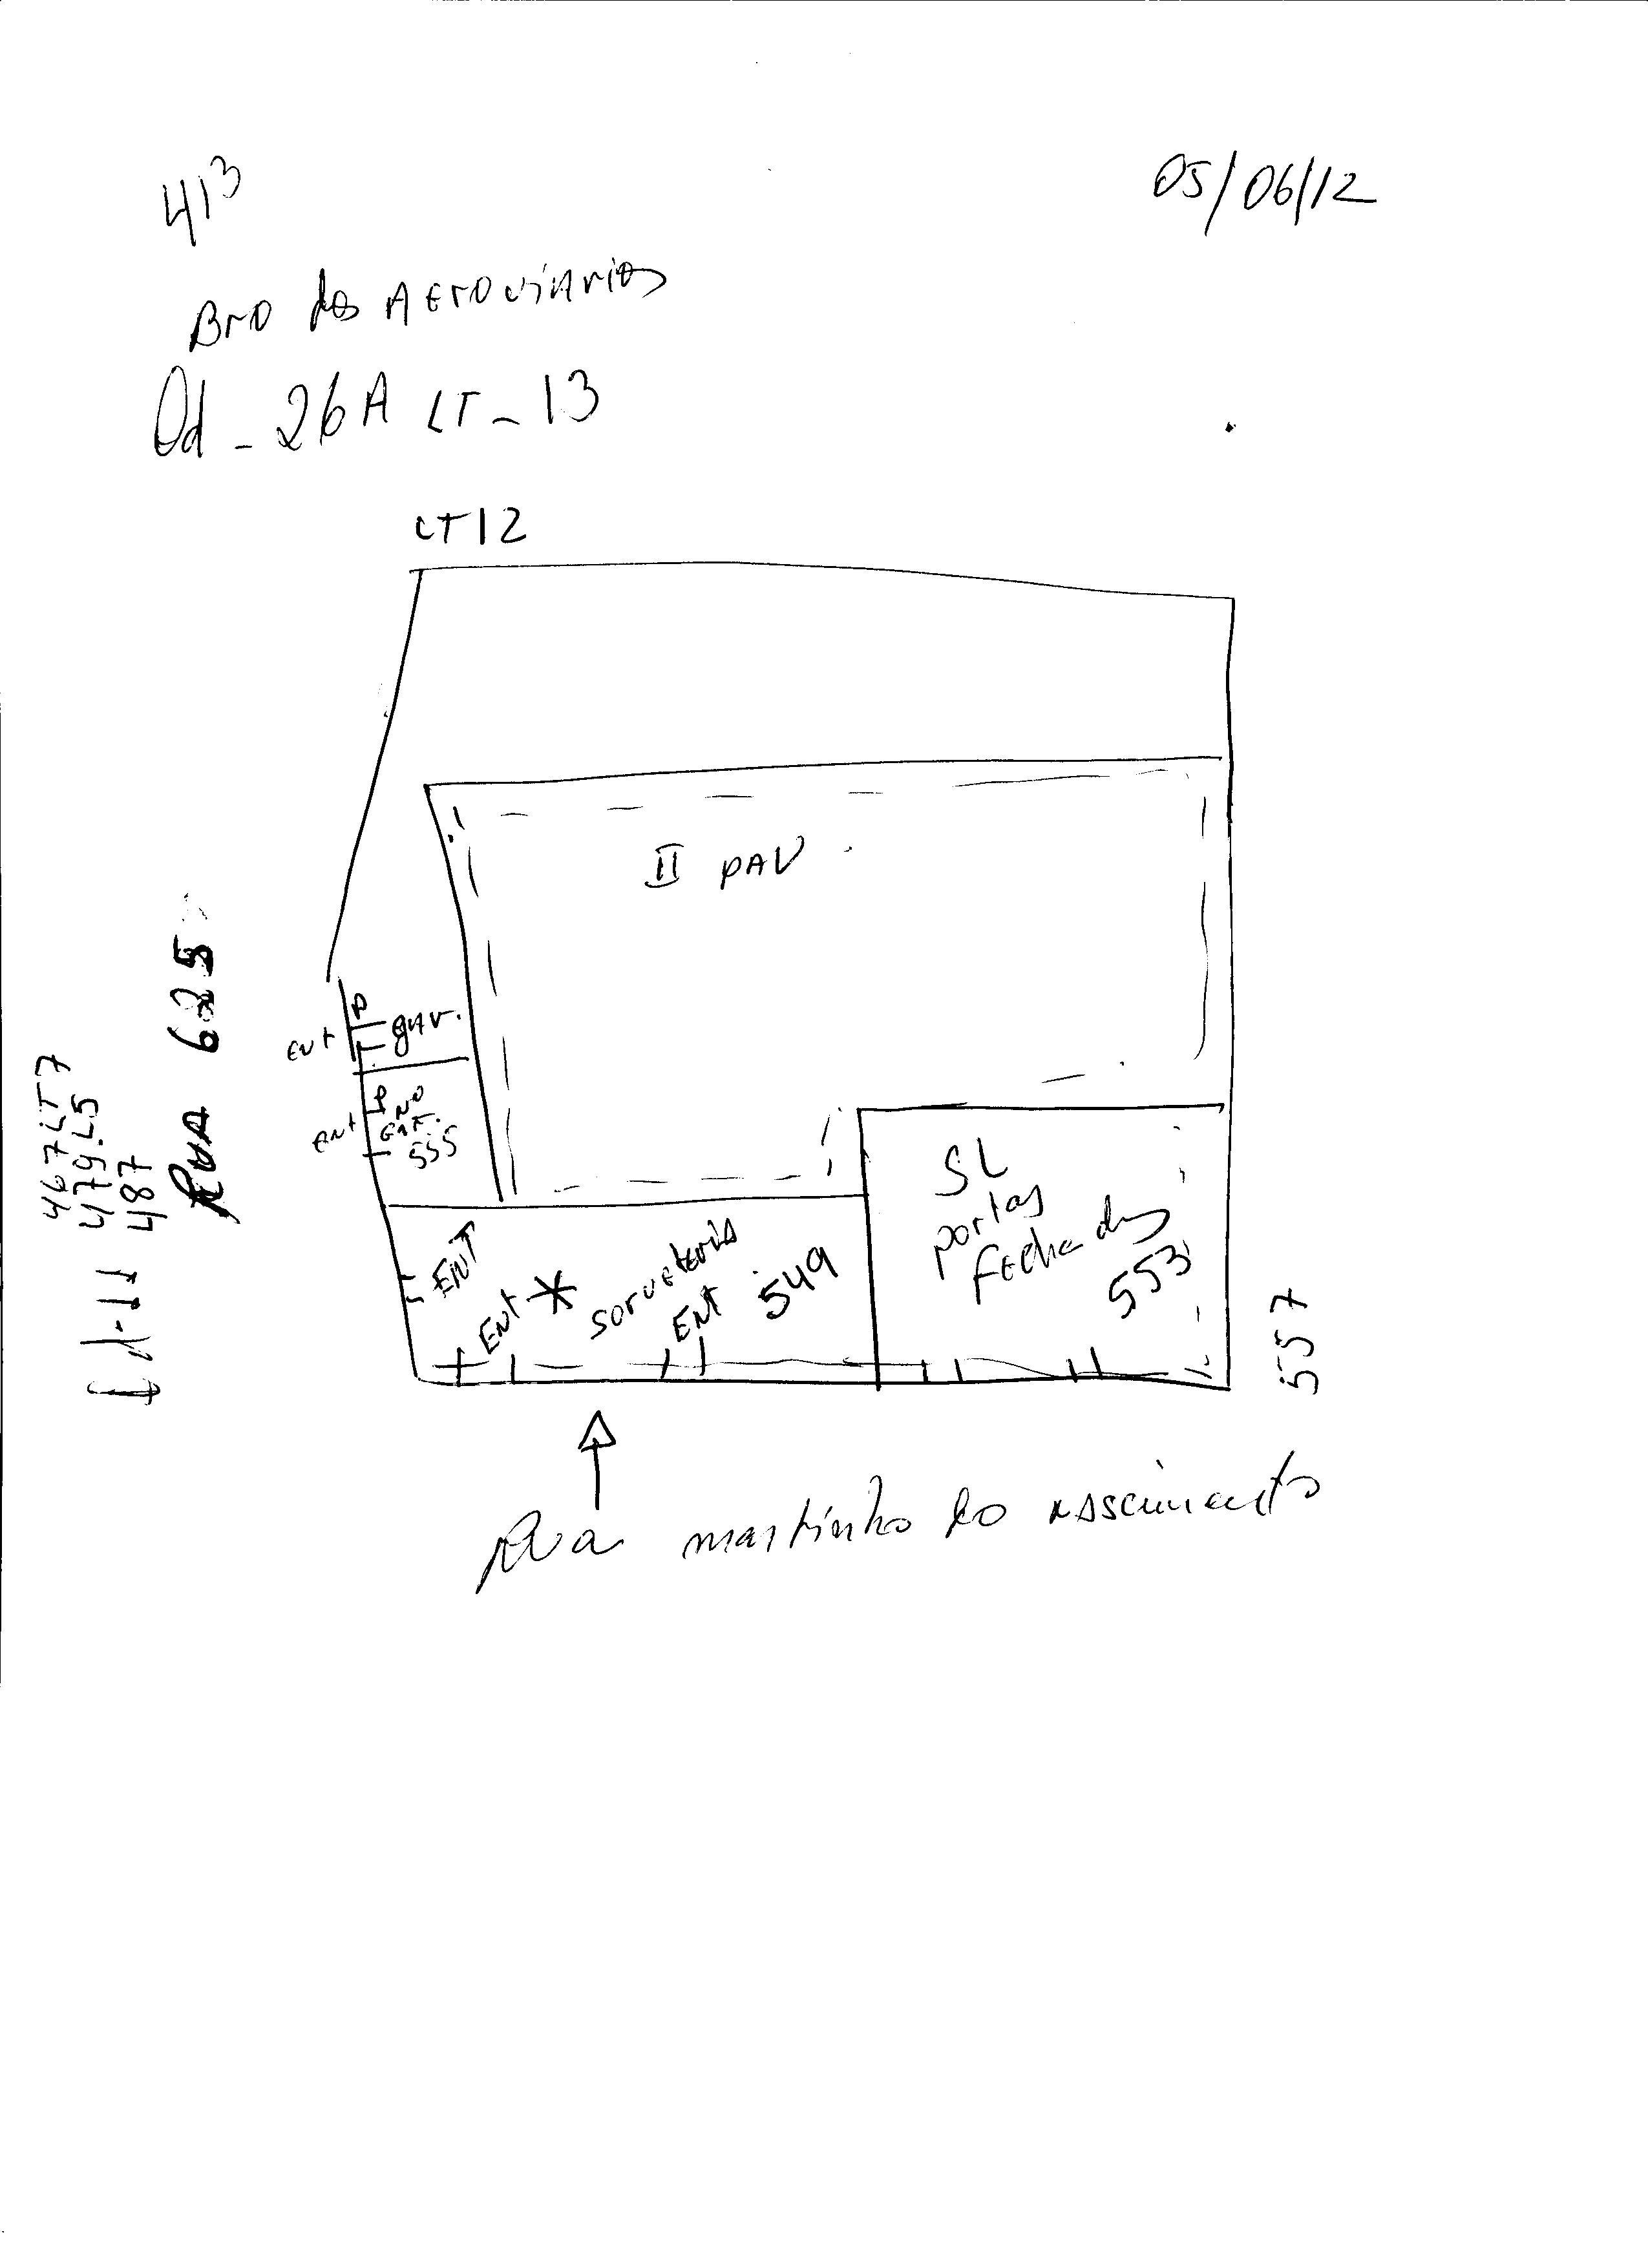 413
05/06/12
Bro dos Aeroviarios
Qd - 26A LT - 13
LT12
II PAV
ENT
gar.
ENT
P/ NO
ENT.
555
SL
portas
fechadas
553
ENT
ENT
sorveteria
ENT
549
557
Rua martinho do nascimento
Rua 625
467 LT 7
479 L5
487